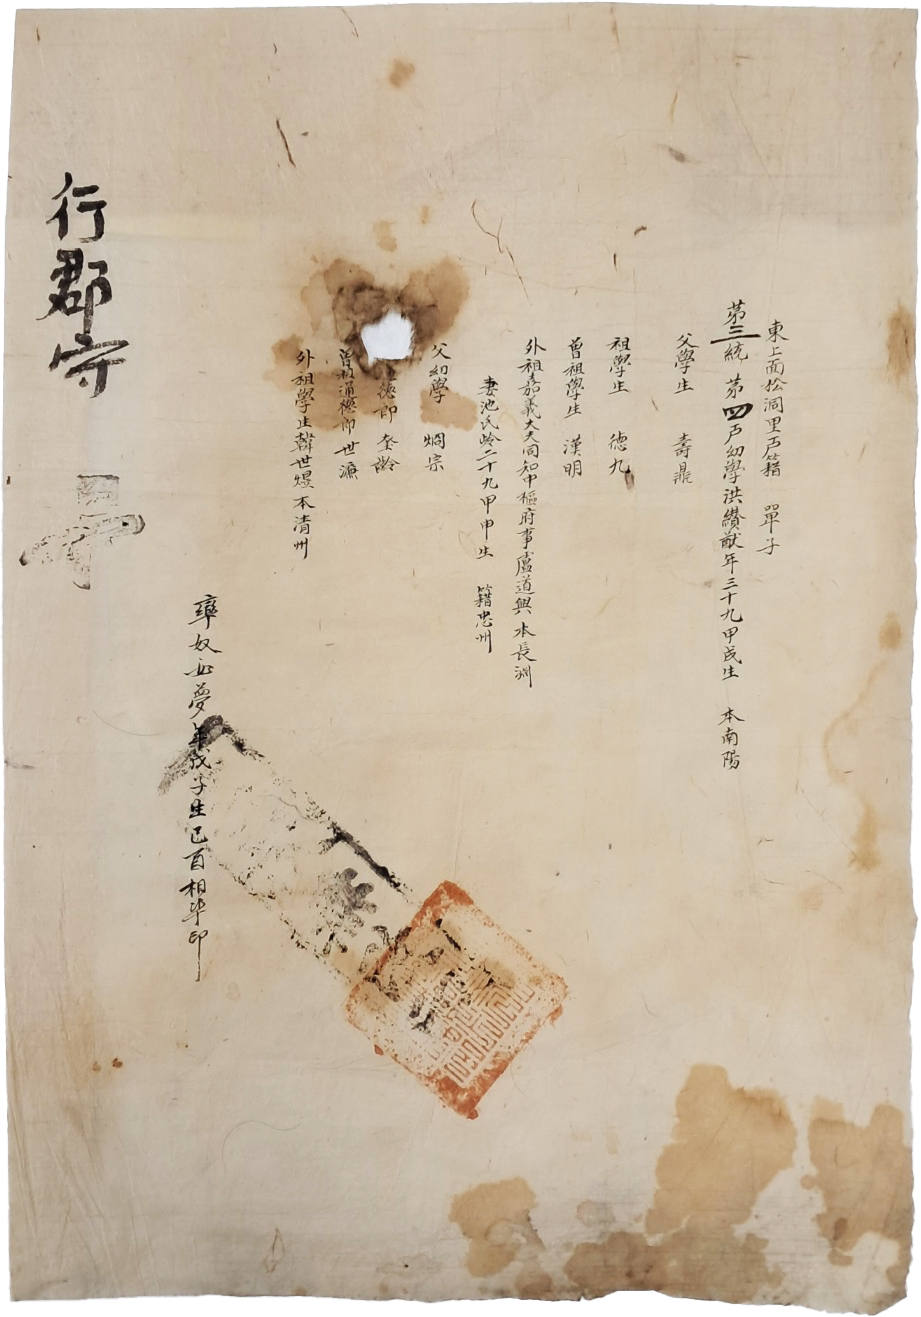 東上面松洞里戶籍 單子
第三統 第四戶幼學洪纘猷年三十九甲戌生 本南陽
父學生 壽鼎
祖學生 德九
曾祖學生 漢明
外祖嘉義大夫同知中樞府事盧道興 本長淵
妻池氏齡二十九甲申生 籍忠州
父幼學 烱宗
德郎 奎齡
曾祖通德郎 世濂
外祖學生韓世煜 本清州
率奴 夢年戊子生己酉相準印
行郡守